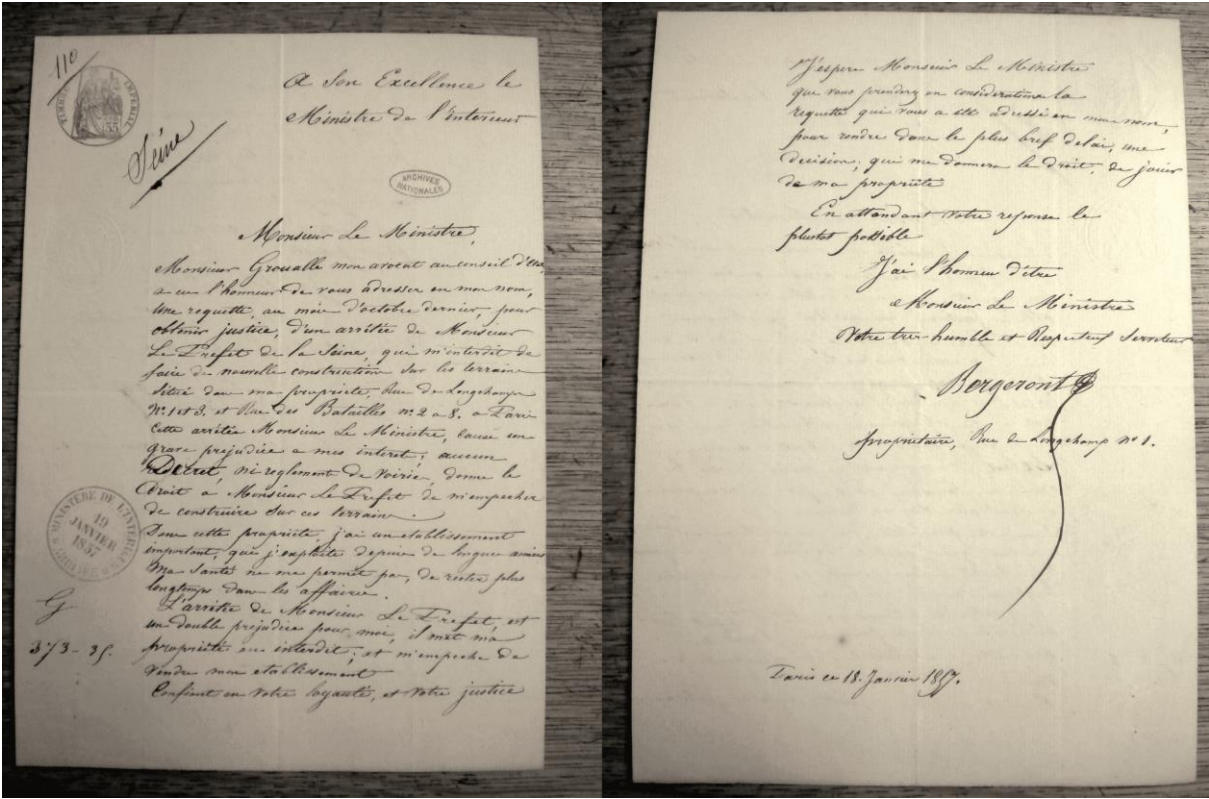 110
TIMBRE IMPERIAL
35
Seine
A Son Excellence le
Ministre de l'Interieur
ARCHIVES
NATIONALES
Monsieur Le Ministre,
Monsieur Groualle mon avocat au conseil d'Etat,
a eu l'honneur de vous adresser en mon nom,
Une requette, au mois d'octobre dernier, pour
obtenir justice, d'un arrêtée de Monsieur
Le Prefet de la Seine, qui m'interdit de
faire de nouvelle construction sur les terrains
situé dans ma propriété, Rue de Longchamps
Nos. 1 et 3. et Rue des Batailles nos. 2 a 8. a Paris
Cette arrêtée Monsieur Le Ministre, cause un
grave préjudice a mes interet; aucun
Décret, ni reglement de Voirie, donne le
Droit a Monsieur Le Prefet de m'empecher
de construire sur ces terrains.
Dans cette propriété, j'ai un etablissement
important, que j'exploite depuis de longues années
Ma Santé ne me permet pas, de rester plus
longtemps dans les affaires.
L'arrêtée de Monsieur Le Prefet, est
un double préjudice pour moi, il met ma
propriété en interdit; et m'empeche de
vendre mon etablissement
Confiant en Votre loyauté, et Votre justice
MINISTERE DE L'INTERIEUR
19
JANVIER
1857
G
373-35.
J'espere Monsieur Le Ministre
que vous prendrez en consideration la
requette qui vous a été adressé en mon nom,
pour rendre dans le plus bref delai, une
décision; qui me donnera le droit, de jouir
de ma propriété
En attendant Votre reponse le
plustot possible
J'ai l'honneur d'être
Monsieur Le Ministre
Votre tres humble et Respectueux Serviteur
Bergeront
propriétaire, Rue de Longchamp no 1.
Paris ce 18. Janvier 1857.